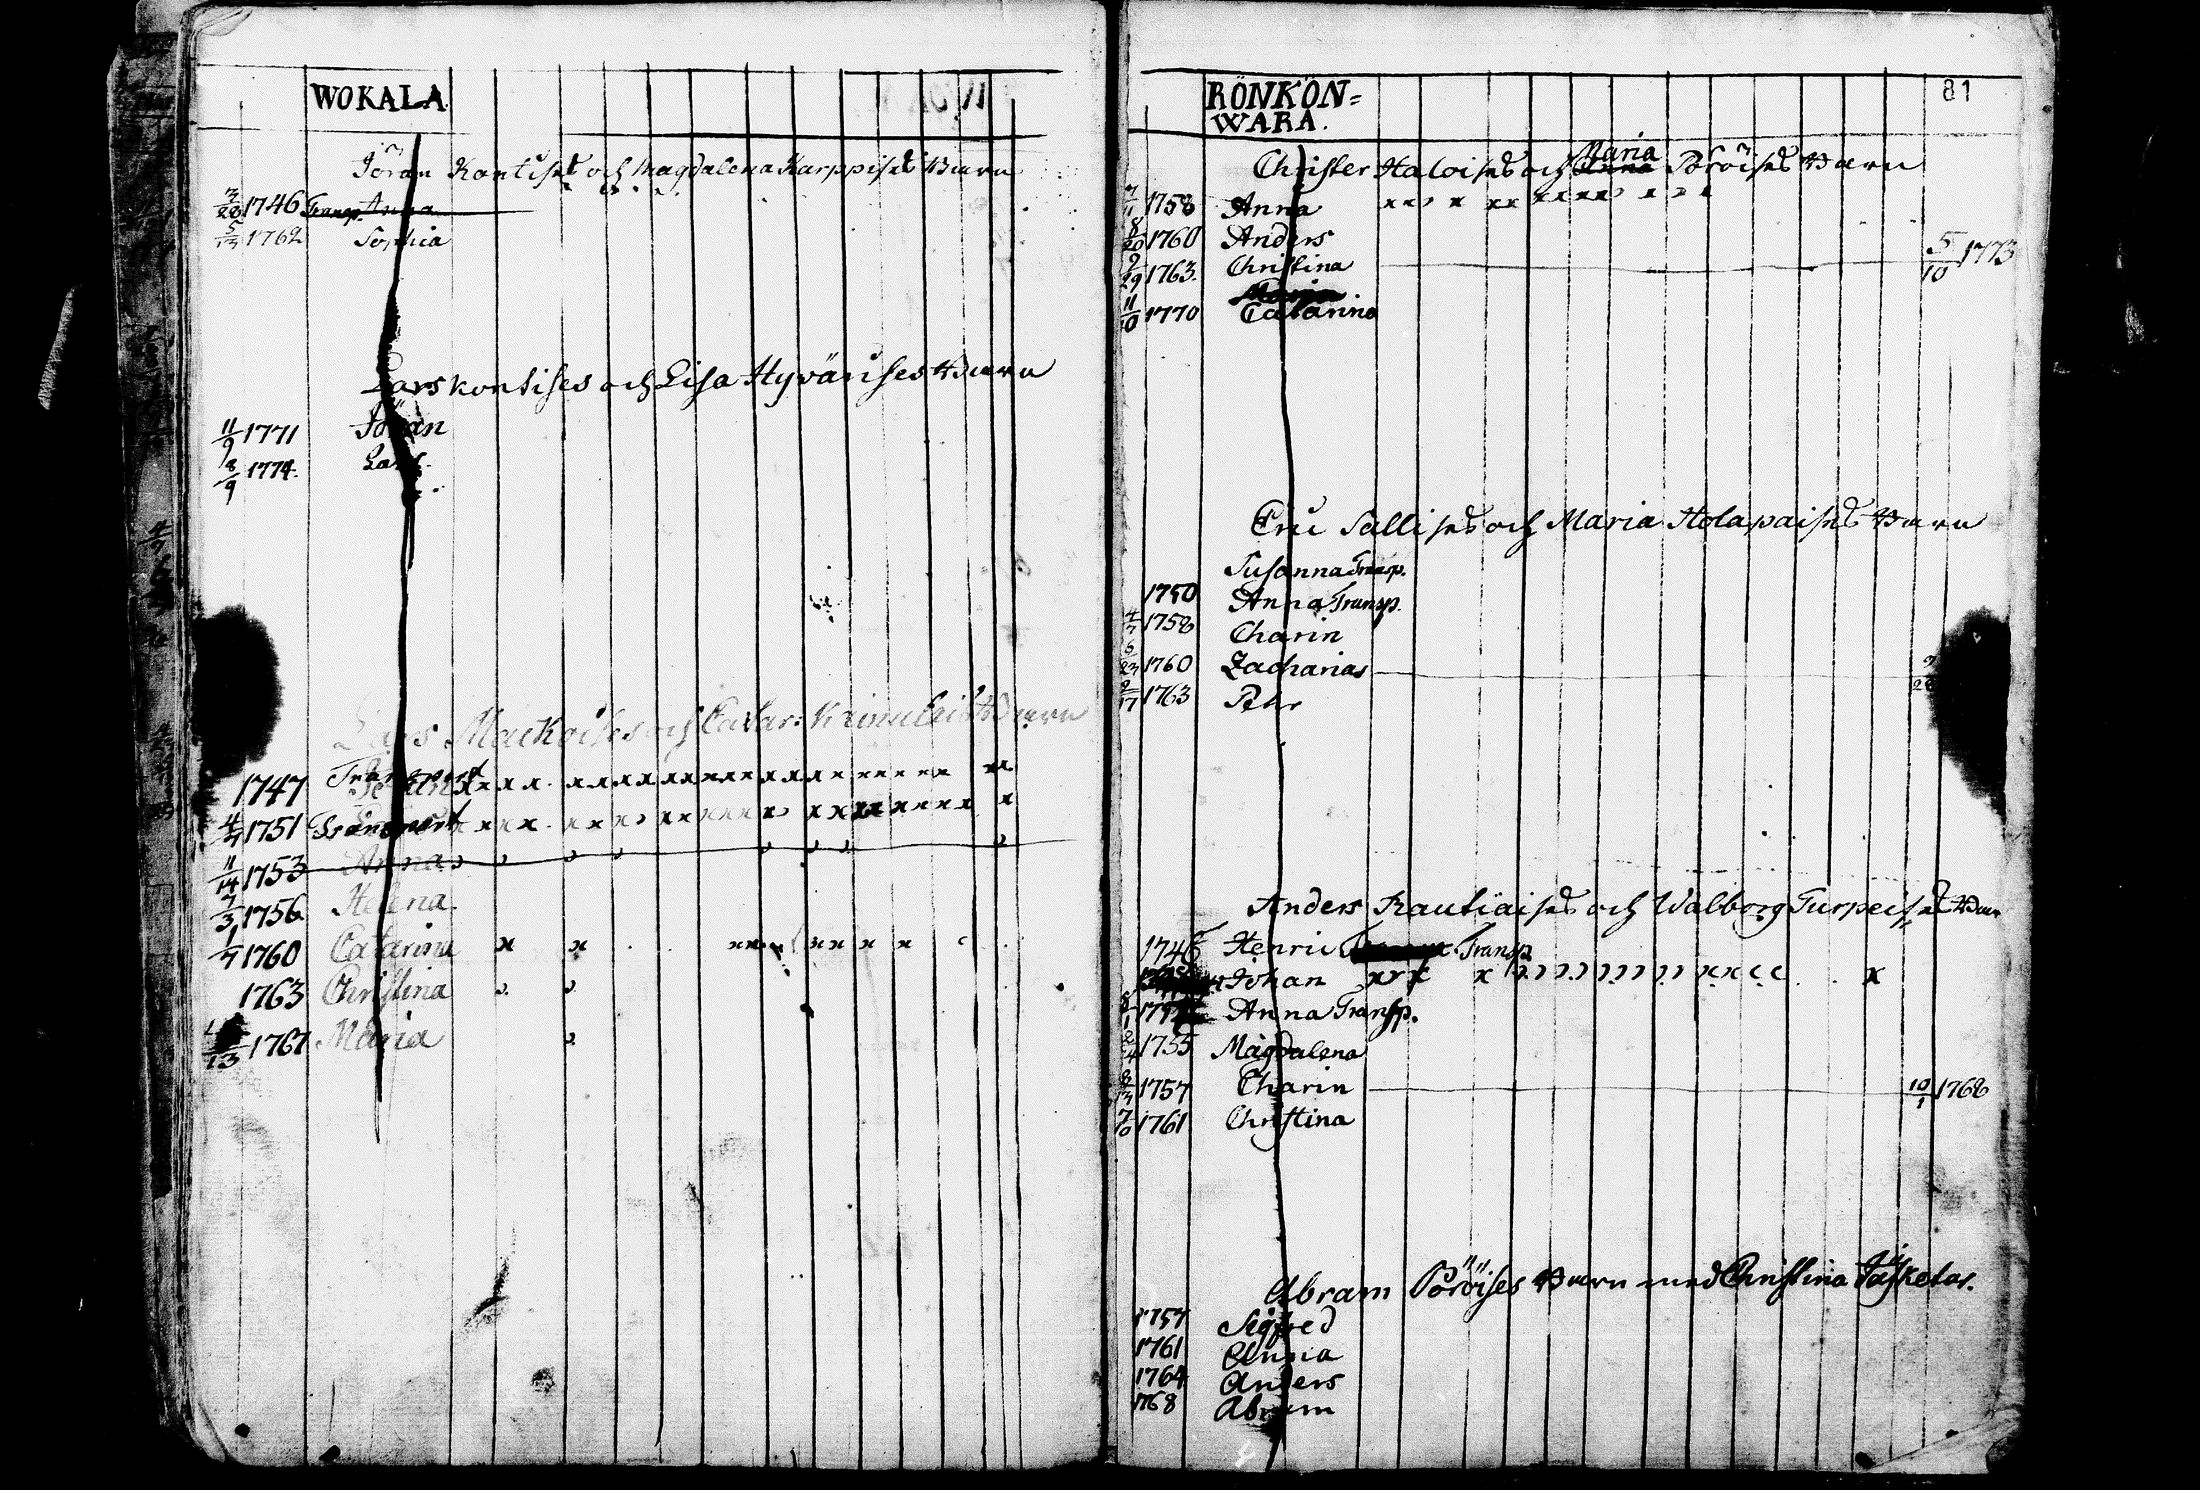 WOKALA
Jöran Kontises och Magdalena Karppises Barn
3/28 1746 Transp. Anna
5/13 1762 Sophia
Lars Kontises och Lisa Hyvärises Barn
11/9 1771 Jöran
8/9 1774. Lars.
Lars Mackoises och Catar: Barn
1747 Transport
4/4 1751 Transport
11/14 1753 Anna
7/3 1756 Helena
1/7 1760 Catarina
1763 Christina
1767 Maria
81
RÖNKÖN=
WARA.
Christer Haloises och Maria Pöröises Barn
7/11 1758 Anna
8/20 1760 Anders
9/29 1763. Christina 5/10 1773
11/10 1770 Catarina
Eric Sallises och Maria Holapaises Barn
Susanna Transp.
1750 Anna Transp.
4/7 1758 Charin
1760 Zacharias
1763 Pehr
Anders Rautiaises och Walborg Turpeises Barn
1746 Henric Transp
Johan
Anna Transp.
2/4 1755 Magdalena
1757 Charin 10/1 1768
7/10 1761 Christina
Abram Pöröises Barn med Christina
1757 Sigfred
1761 Anna
1764 Anders
1768 Abram